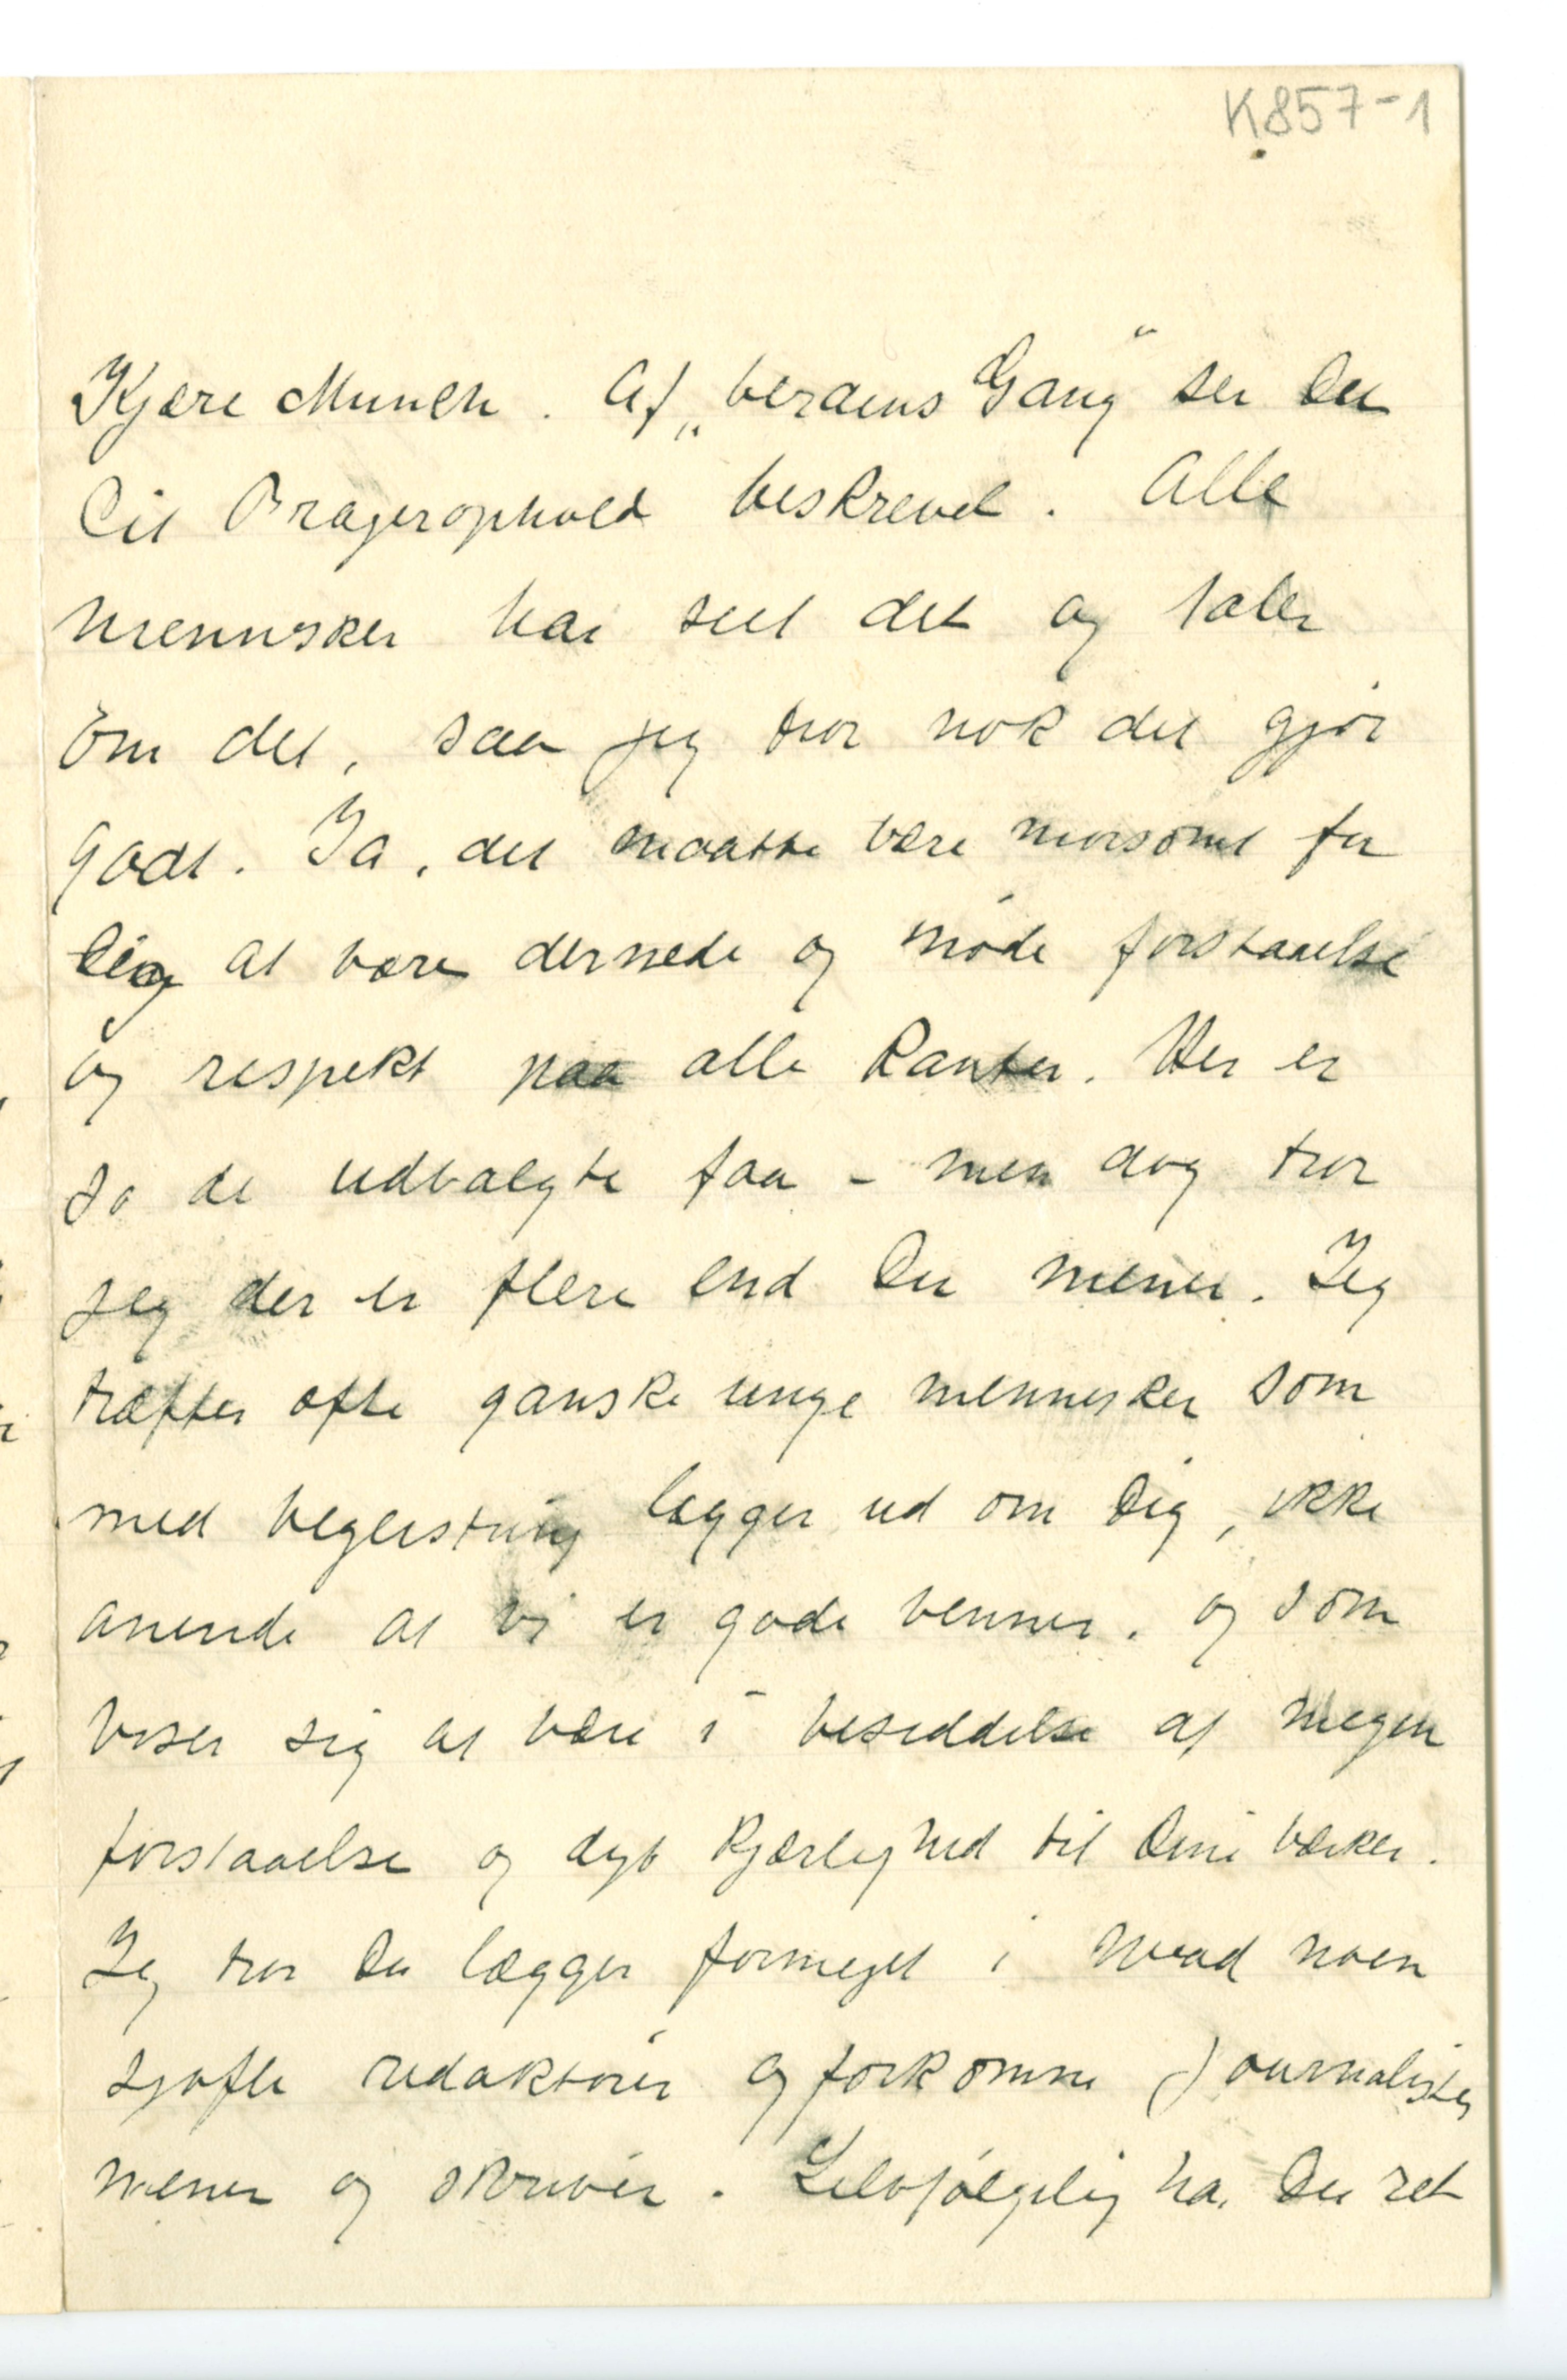 K857-1
Kjære Munch. Af „Verdens Gang" ser Du
Dit Pragerophold beskrevet. Alle
mennesker har seet det og taler
om det, saa jeg tror nok det gjør
godt. Ja, det maatte være morsomt for
Dig at være dernede og møde forstaaelse
og respekt paa alle kanter. Her er
jo de udvalgte faa – men dog tror
jeg der er flere end Du mener. Jeg
træffer ofte ganske unge mennesker som
med begeistring lægger ud om Dig, ikke
anende at vi er gode venner, og som
viser sig at være i besiddelse af megen
forstaaelse og dyb kjærlighed til Dine værker.
Jeg tror Du lægger formeget i hvad noen
sjofle redaktører og forkomne journalister
mener og skriver. Selvfølgelig har Du ret